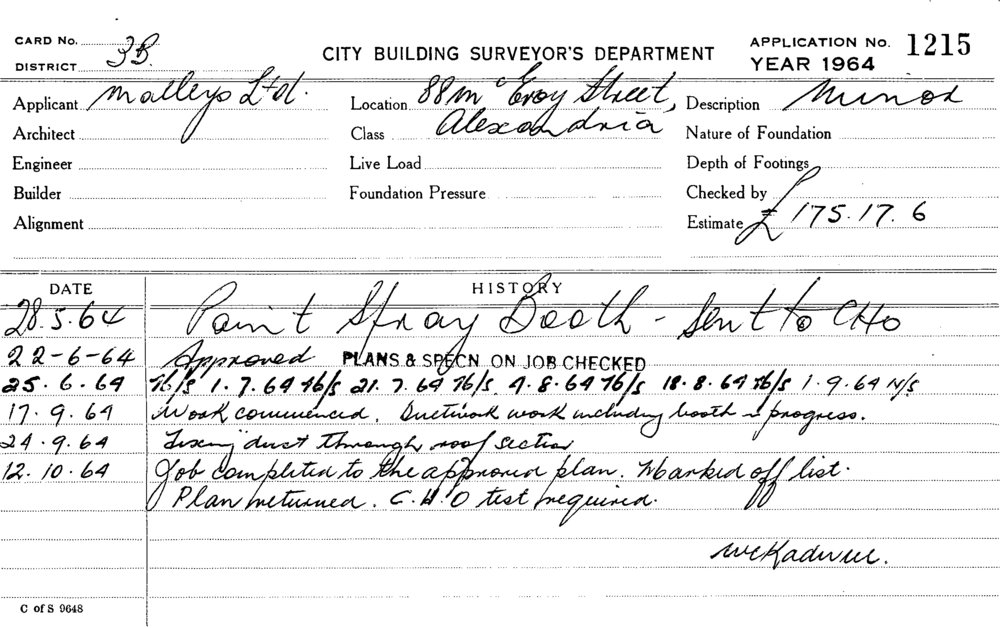 CARD No. 3B.
DISTRICT
CITY BUILDING SURVEYOR'S DEPARTMENT
APPLICATION No. 1215
YEAR 1964
Applicant Malleys Ltd.
Location 88 McEvoy Street,
Description Minor
Architect
Class Alexandria
Nature of Foundation
Engineer
Live Load
Depth of Footings
Builder
Foundation Pressure
Checked by
Alignment
Estimate £175.17.6
DATE HISTORY
28.5.64 Paint Spray Booth - Sent to CHO
22-6-64 Approved PLANS & SPECN. ON JOB CHECKED
25.6.64 N/S 1.7.64 N/S 21.7.64 N/S. 4.8.64 N/S 18.8.64 N/S 1.9.64 N/S
17.9.64 Work commenced. Ductwork work including booth in progress.
24.9.64 Fixing duct through roof section
12.10.64 Job completed to the approved plan. Marked off list.
Plan returned. C.H.O test required.
C of S 9648